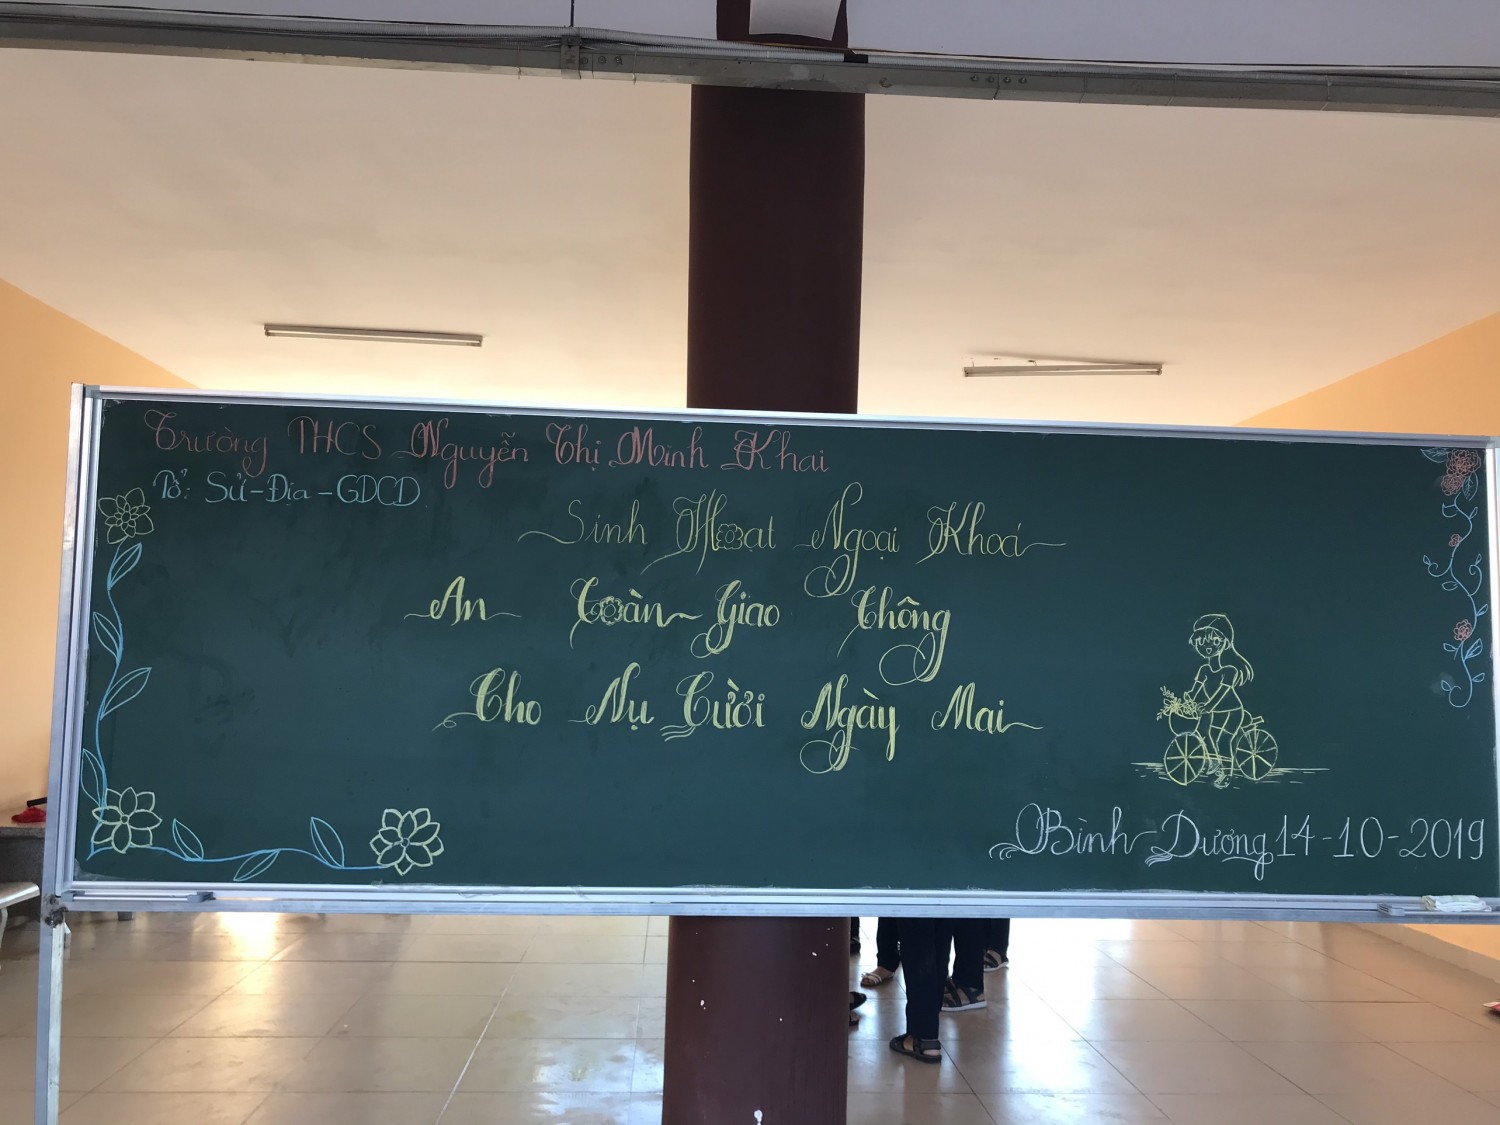 Trường THCS Nguyễn Thị Minh Khai
Tổ: Sử-Địa-GDCD
Sinh Hoạt Ngoại Khoá
An Toàn Giao Thông
Cho Nụ Cười Ngày Mai
Bình Dương 14-10-2019